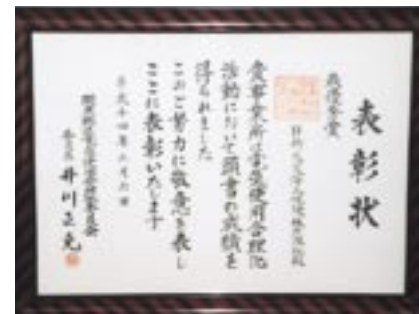 表彰状
最優秀賞
貴事業所は電気使用合理化
活動において頭書の成績を
得られました
このご努力に敬意を表し
ここに表彰いたします
平成十四年二月六日
委員長 井川正克